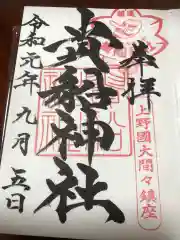 奉拝
上野國大間々鎮座
貴船神社
令和元年九月五日